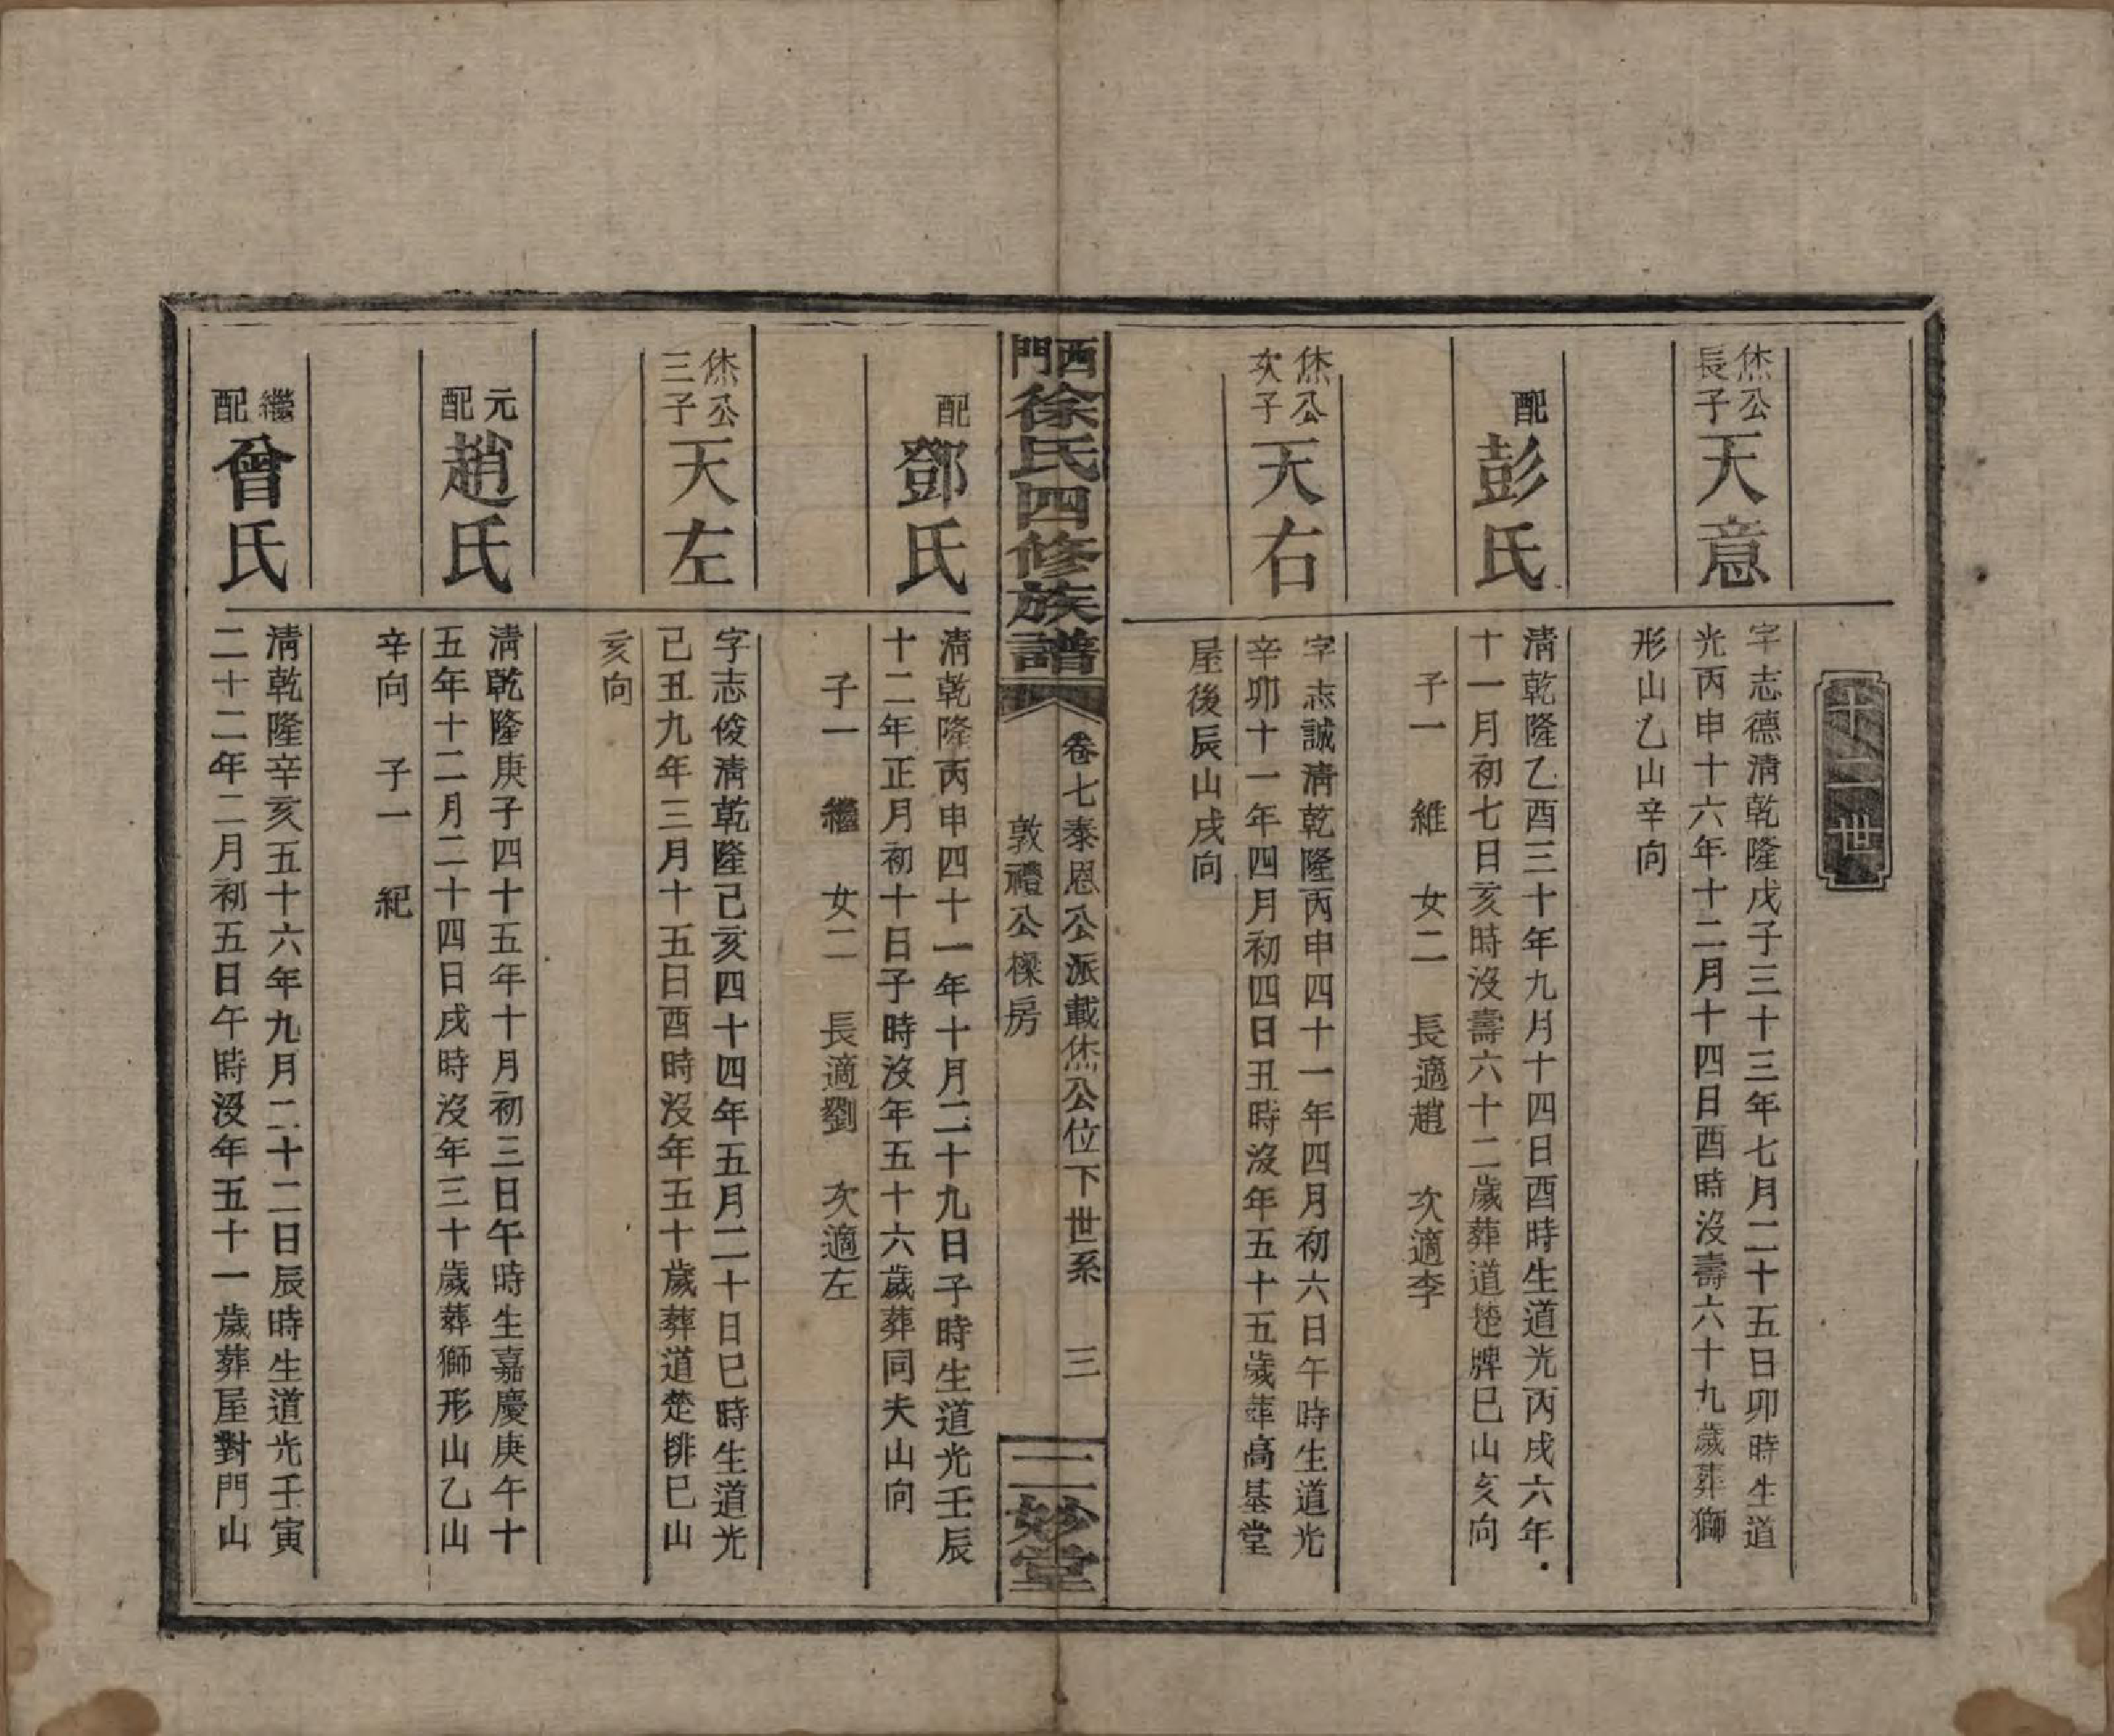 十二世
烋公
長子
天意
字志德清乾隆戊子三十三年七月二十五日卯時生道
光丙申十六年十二月十四日酉時沒壽六十九歲葬獅
形山乙山辛向
配
彭氏
清乾隆乙酉三十年九月十四日酉時生道光丙戌六年
十一月初七日亥時沒壽六十二歲葬道楚牌巳山亥向
子一 維 女二 長適趙 次適李
烋公
次子
天右
字志誠清乾隆丙申四十一年四月初六日午時生道光
辛卯十一年四月初四日丑時沒年五十五歲葬高基堂
屋後辰山戌向
西門徐氏四修族譜
卷七泰恩公派載烋公位下世系 三
敦禮公樑房
二妙堂
配
鄧氏
清乾隆丙申四十一年十月二十九日子時生道光壬辰
十二年正月初十日子時沒年五十六歲葬同夫山向
子一 繼 女二 長適劉 次適左
烋公
三子
天左
字志俊清乾隆己亥四十四年五月二十日巳時生道光
己丑九年三月十五日酉時沒年五十歲葬道楚排巳山
亥向
元配
趙氏
清乾隆庚子四十五年十月初三日午時生嘉慶庚午十
五年十二月二十四日戌時沒年三十歲葬獅形山乙山
辛向 子一 紀
繼配
曾氏
清乾隆辛亥五十六年九月二十二日辰時生道光壬寅
二十二年二月初五日午時沒年五十一歲葬屋對門山